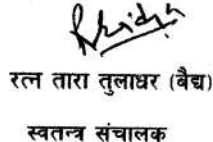 रत्न तारा तुलाधर (बैद्य)
स्वतन्त्र संचालक